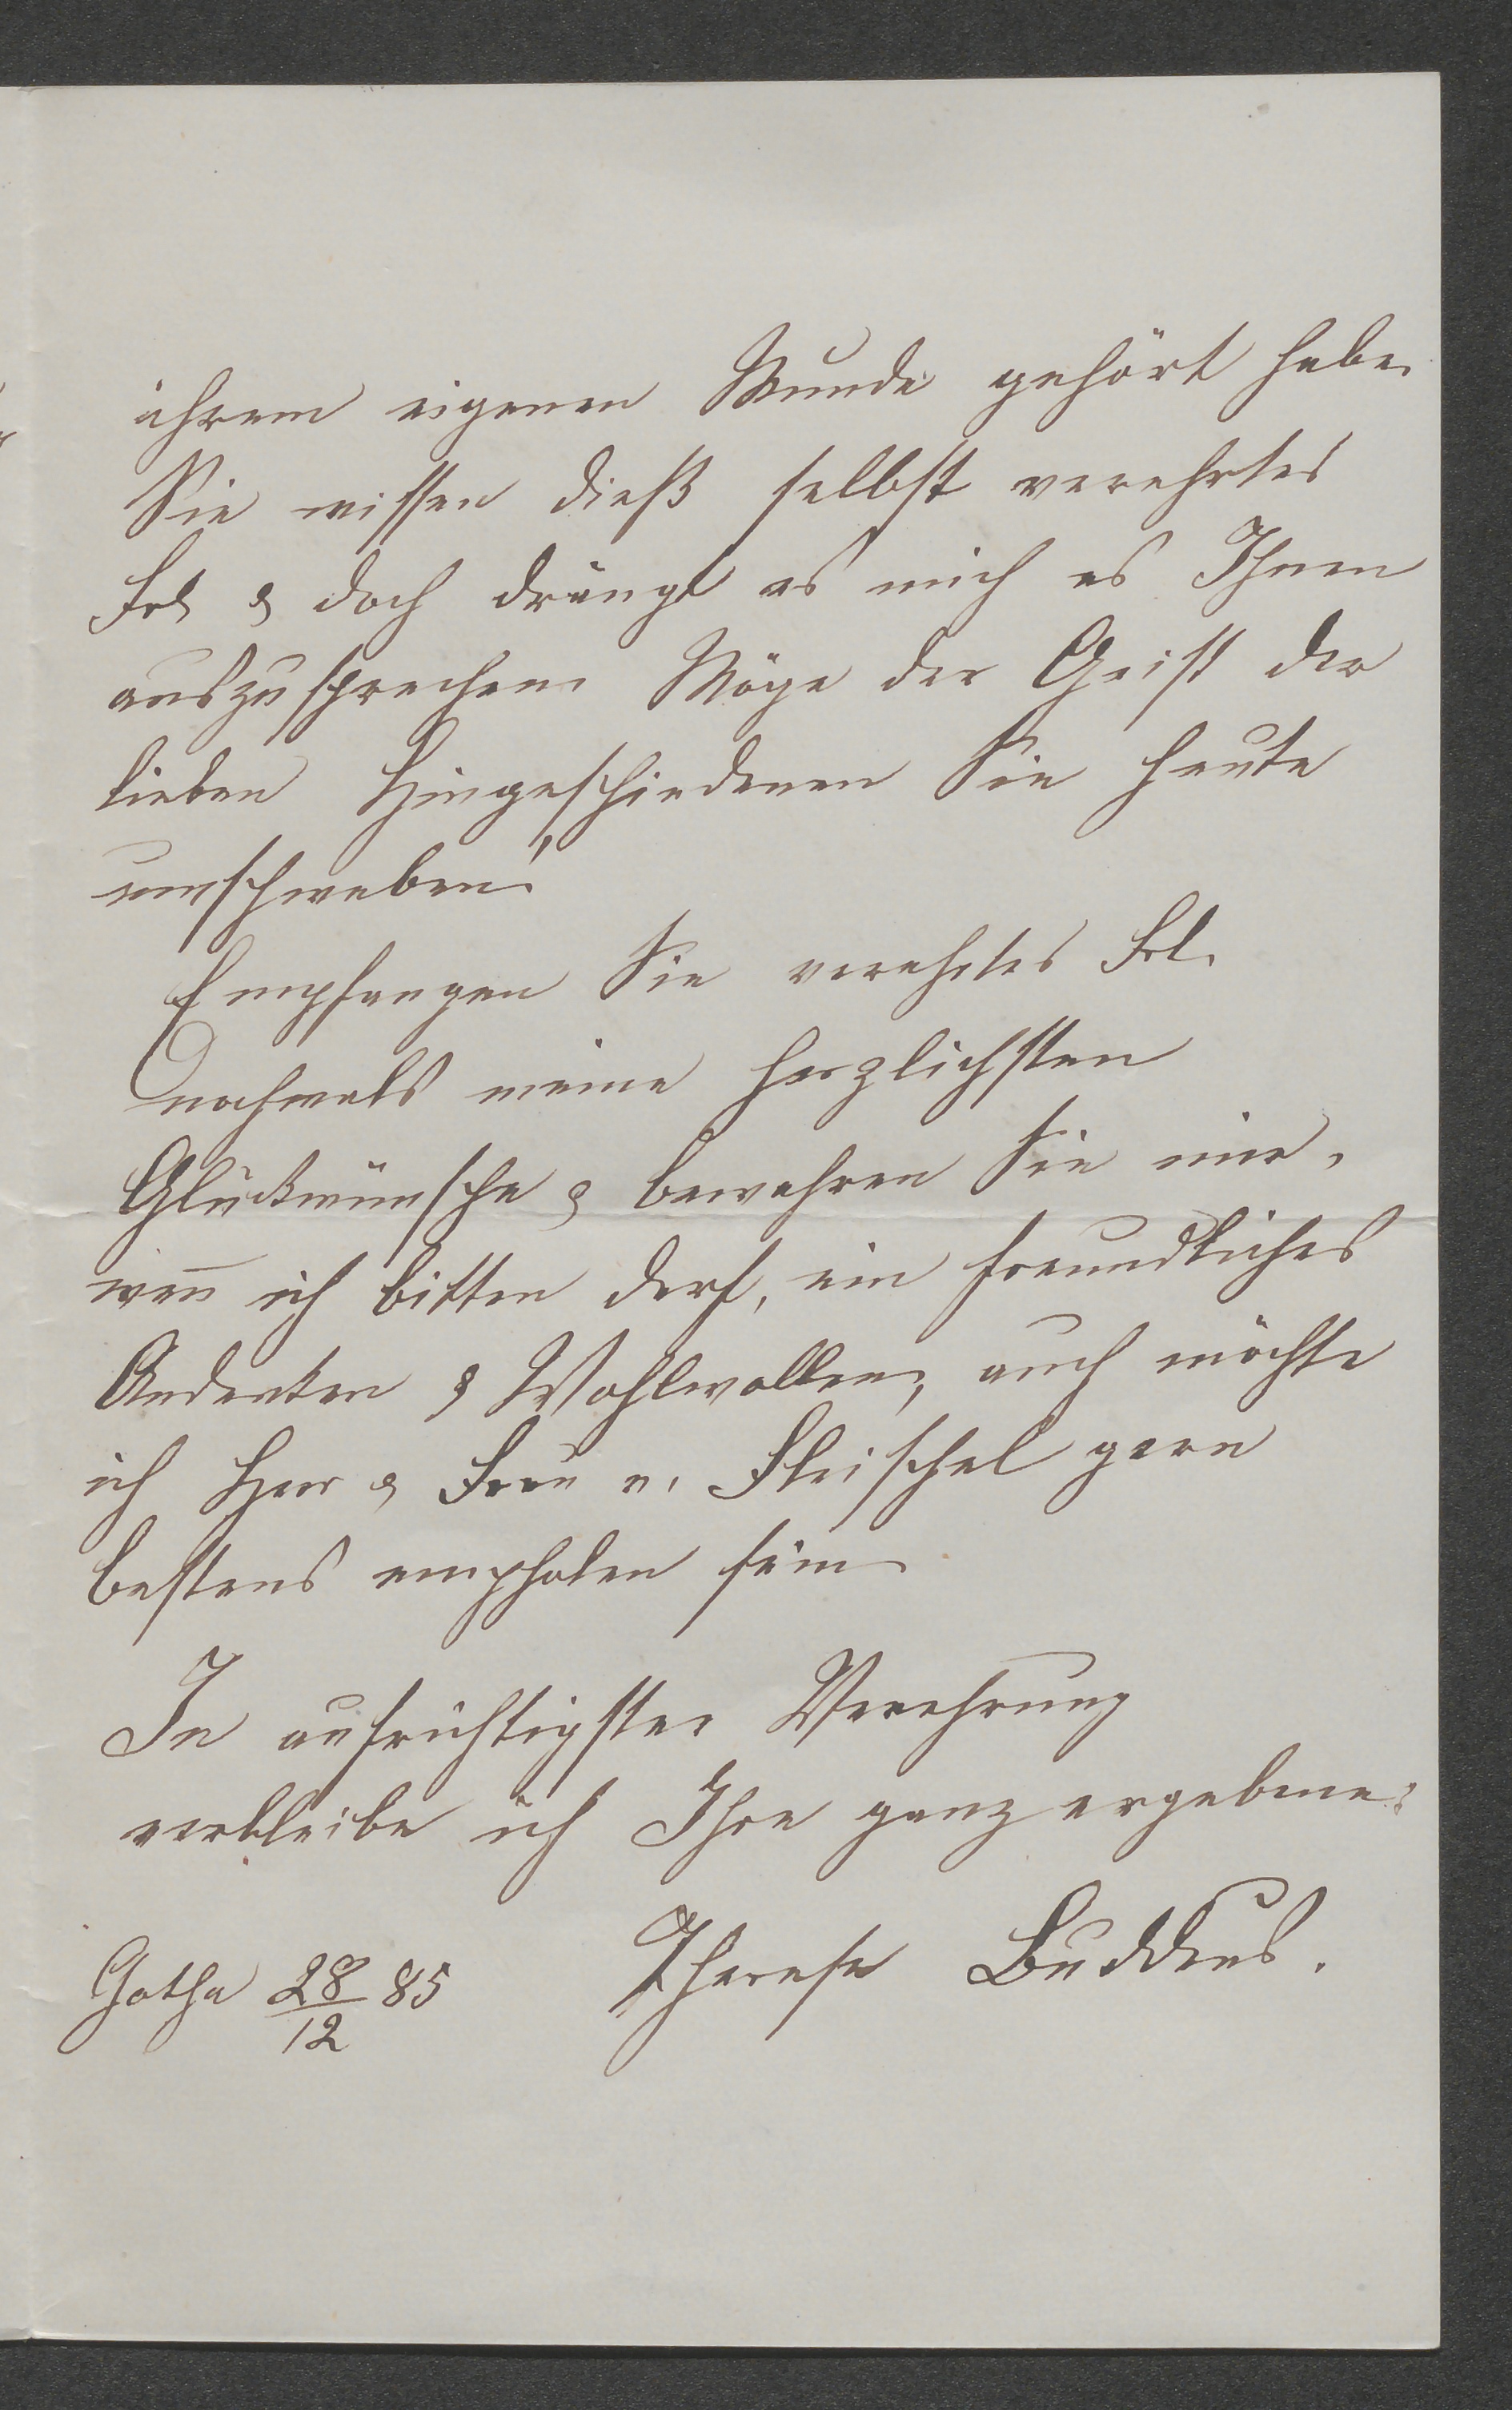 ihrem eigenen Munde gehört habe.
Sie wissen dieß selbst verehrtes
Frl & doch drängt es mich es Ihnen
auszusprechen. Möge der Geist der
lieben Hingeschiedenen Sie heute
umschweben!
Empfangen Sie verehrtes Frl.
nochmals meine herzlichsten
Glückwünsche & bewahren Sie mir,
wen̄ ich bitten darf, ein freundliches
Andenken & Wohlwollen, auch möchte
ich Herr & Frau v. Fleischel gern
bestens empholen sein.
In aufrichtigster Verehrung
verbleibe ich Ihre ganz ergebene
Therese Buddeus.
Gotha 28/12 85